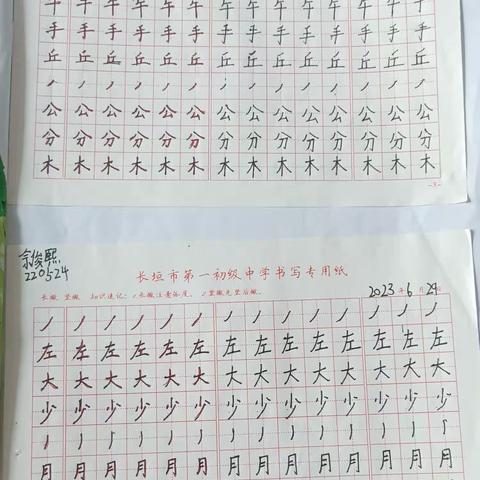 午 午 午 午 午 午 午 午 午 午 午 午 午 午
手 手 手 手 手 手 手 手 手 手 手 手 手 手
丘 丘 丘 丘 丘 丘 丘 丘 丘 丘 丘 丘 丘 丘
丿 丿 丿 丿 丿 丿 丿 丿 丿 丿 丿 丿 丿 丿
公 公 公 公 公 公 公 公 公 公 公 公 公 公
分 分 分 分 分 分 分 分 分 分 分 分 分 分
木 木 木 木 木 木 木 木 木 木 木 木 木 木
-3-
俊熙
220524
长垣市第一初级中学书写专用纸
长撇 竖撇 知识速记:1.长撇注意弧度。2.竖撇先竖后撇。 2023年6月24日
丿 丿 丿 丿 丿 丿 丿 丿 丿 丿 丿 丿 丿 丿
左 左 左 左 左 左 左 左 左 左 左 左 左 左
大 大 大 大 大 大 大 大 大 大 大 大 大 大
少 少 少 少 少 少 少 少 少 少 少 少 少 少
丿 丿 丿 丿 丿 丿 丿 丿 丿 丿 丿 丿 丿 丿
月 月 月 月 月 月 月 月 月 月 月 月 月 月